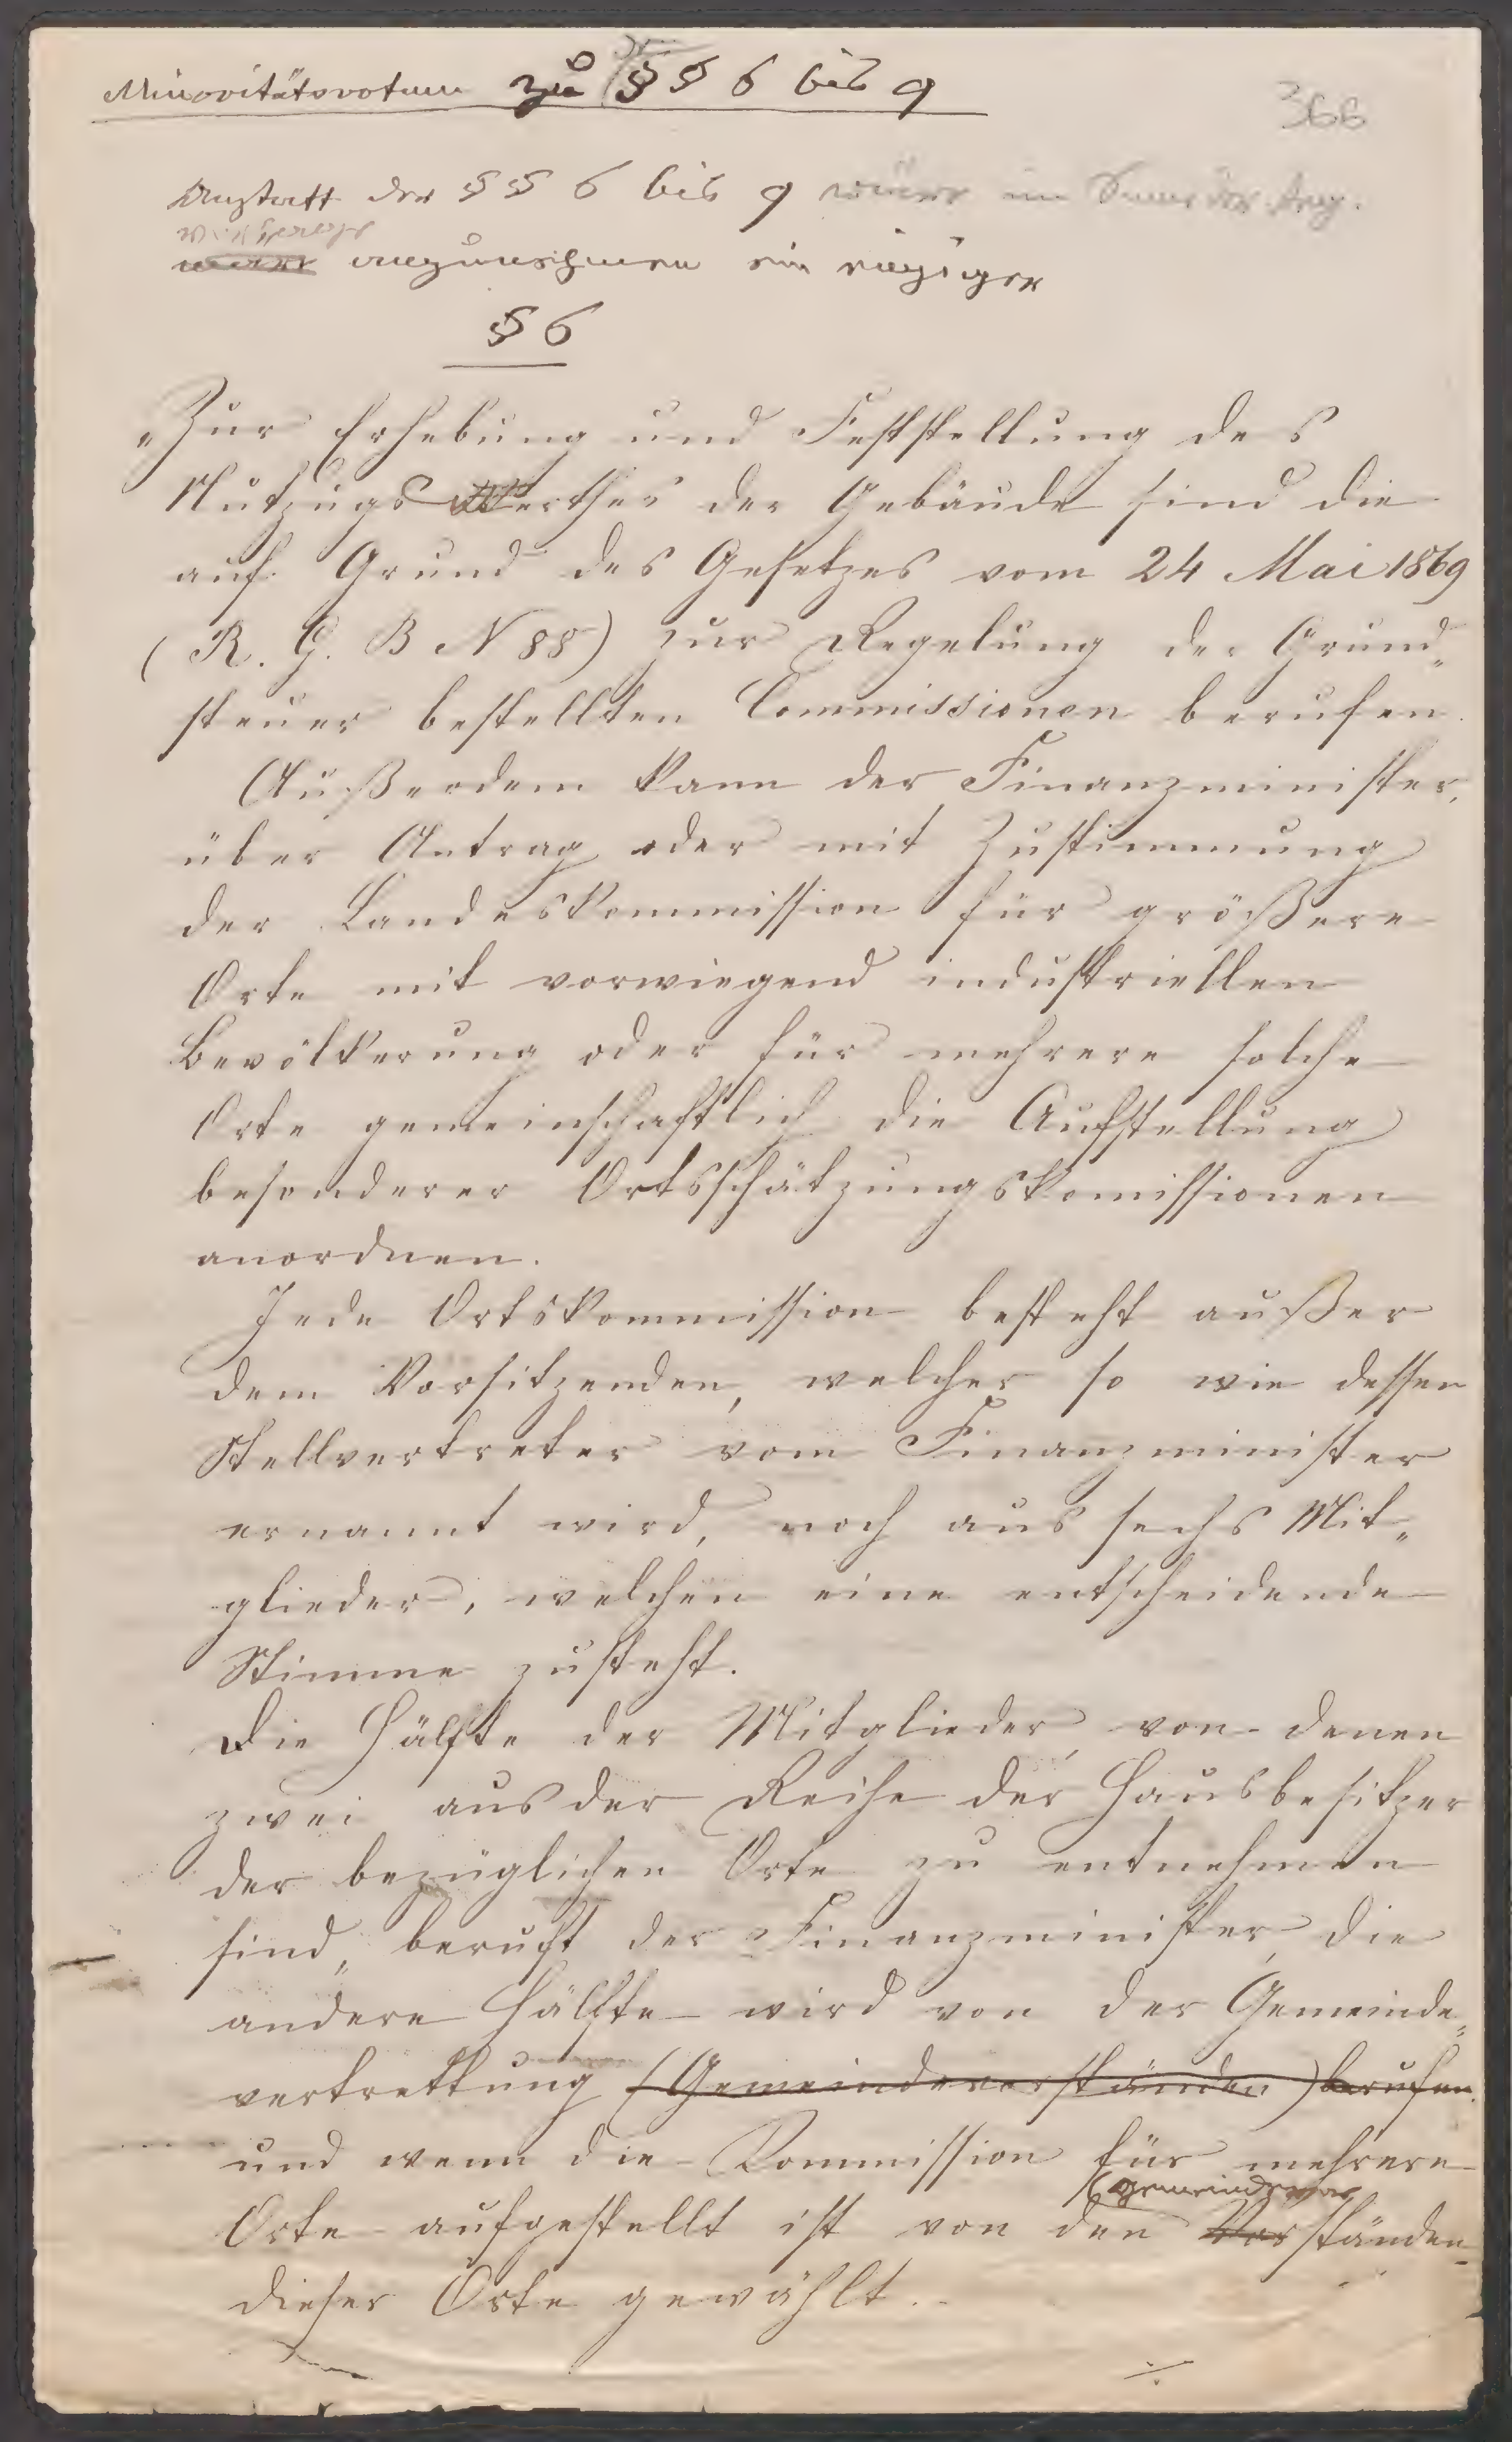 Minoritätsvotum zu §§ 6 bis 9
366
Anstatt der §§ 6 bis 9 wäre im Sinne der
anzunehmen ein einziger
§ 6
„Zur Erhebung und Feststellung des
Nutzungswerthes der Gebäude sind die
auf Grund des Gesetzes vom 24 Mai 1869
(R. G. B N 88) zur Regelung der Grund„
steuer bestellten Commissionen berufen.
Außerdem kann der Finanzminister,
über Antrag oder mit Zustimmung
der Landeskommission für größere
Orte mit vorwiegend industriellen
Bevölkerung oder für mehrere solche
Orte gemeinschaftlich die Aufstellung
besonderer Ortsschätzungskomissionen
anordnen.
Jede Ortskommission besteht außer
dem Vorsitzenden, welcher so wie dessen
Stellvertreter vom Finanzminister
ernannt wird, noch aus sechs Mit„
glieder, welchen eine entscheidende
Stimme zusteht.
Die Hälfte der Mitglieder, von denen
zwei aus der Reihe der Hausbesitzer
der bezüglichen Orte zu entnehmen
sind, beruft der Finanzminister, die
andere Hälfte wird von der Gemeinde„
vertrettung (Gemeindevorständen) berufen.
und wenn die Kommission für mehrere
(gemeindevor
Orte aufgestellt ist von den Vorständen
dieser Orte gewählt.